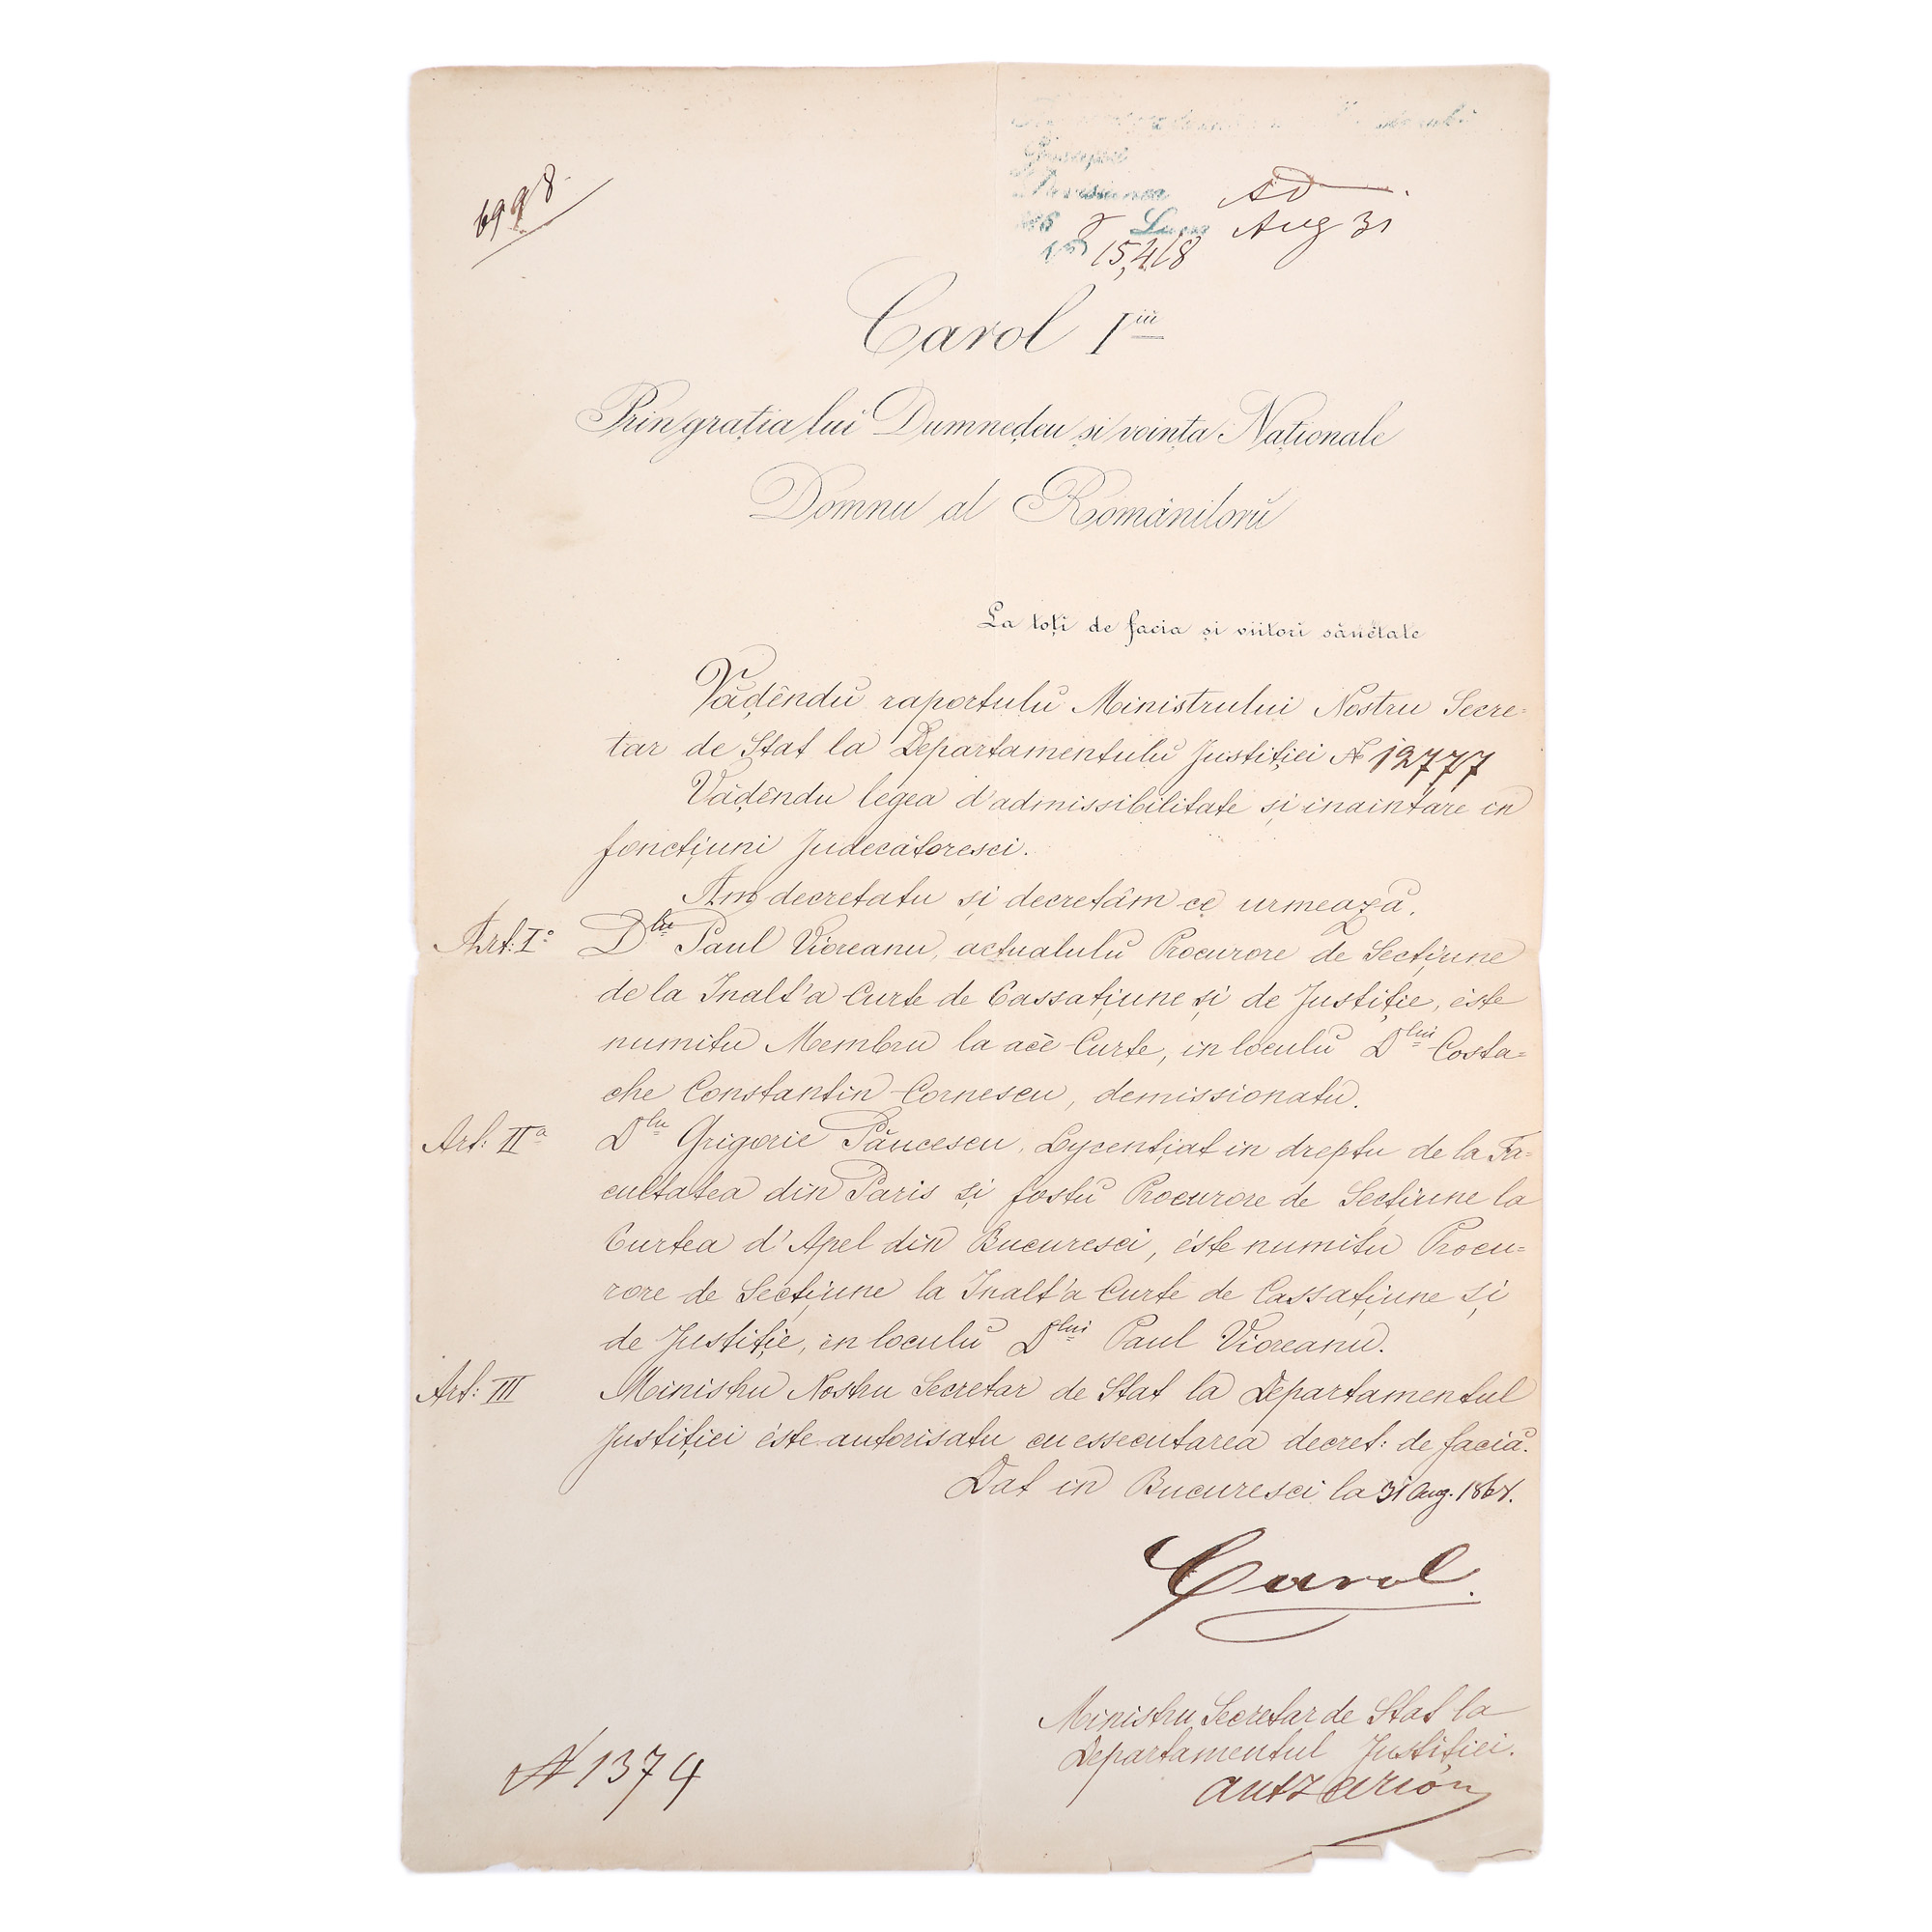 6998
Divisiunea
Aug 31
15,418
Carol I iü
Prin grația lui Dumneḑeu și voința Naționale
Domnu al Româniloru
La toți de facia și viitori sănĕtate
Văḑêndŭ raportulŭ Ministrului Nostru Secre=
tar de Stat la Departamentulŭ Justiției № 12777
Văḑêndŭ legea d'admissibilitate și inaintare in
foncțiuni Judecătoresci.
Am decretatu și decretăm ce urmează.
Art: I° D lu Paul Vioreanu, actualulŭ Procurore de Secțiune
de la Inalt'a Curte de Cassațiune și de Justiție, éste
numitu Membru la acè Curte, in loculŭ D lui Costa=
che Constantin Cornescu, demissionatu.
Art: II a D lu Grigorie Păucescu, Lycențiat in dreptu de la Fa=
cultatea din Paris și fostŭ Procurore de Secțiune la
Curtea d'Apel din Bucuresci, éste numitu Procu=
rore de Secțiune la Inalt'a Curte de Cassațiune și
de Justiție, in loculŭ D lui Paul Vioreanu.
Art: III Ministru Nostru Secretar de Stat la Departamentul
Justiției éste autorisatu cu essecutarea decret: de faciă.
Dat in Bucuresci la 31 Aug. 1868.
Carol.
Ministru Secretar de Stat la
Departamentul Justiției.
№ 1374